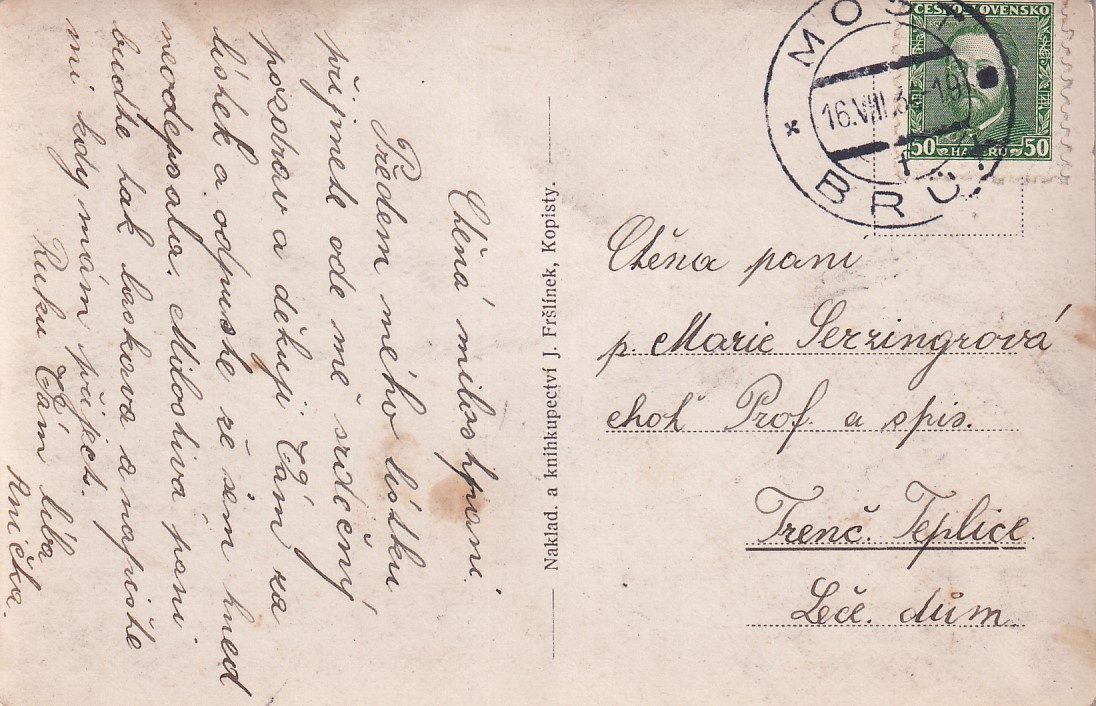 Ctěná milostpaní
Předem mého lístku
přijmete ode mě srdečný
pozdrav a děkuji Vám za
lístek a odpuste že sem hned
neodepsala. Milostivá paní
budte tak laskava a napište
mi kdy mám přiject.
Ruku Vám líba
Anička.
Naklad. a knihkupectví J. Fršlínek, Kopisty.
MOST
16.VIII.3 -19
BRÜX
ČESKOSLOVENSKO
50 HALÉŘŮ 50
Ctěna paní
p. Marie Serzingrová
choť Prof. a spis.
Trenč. Teplice.
Léč. dům.